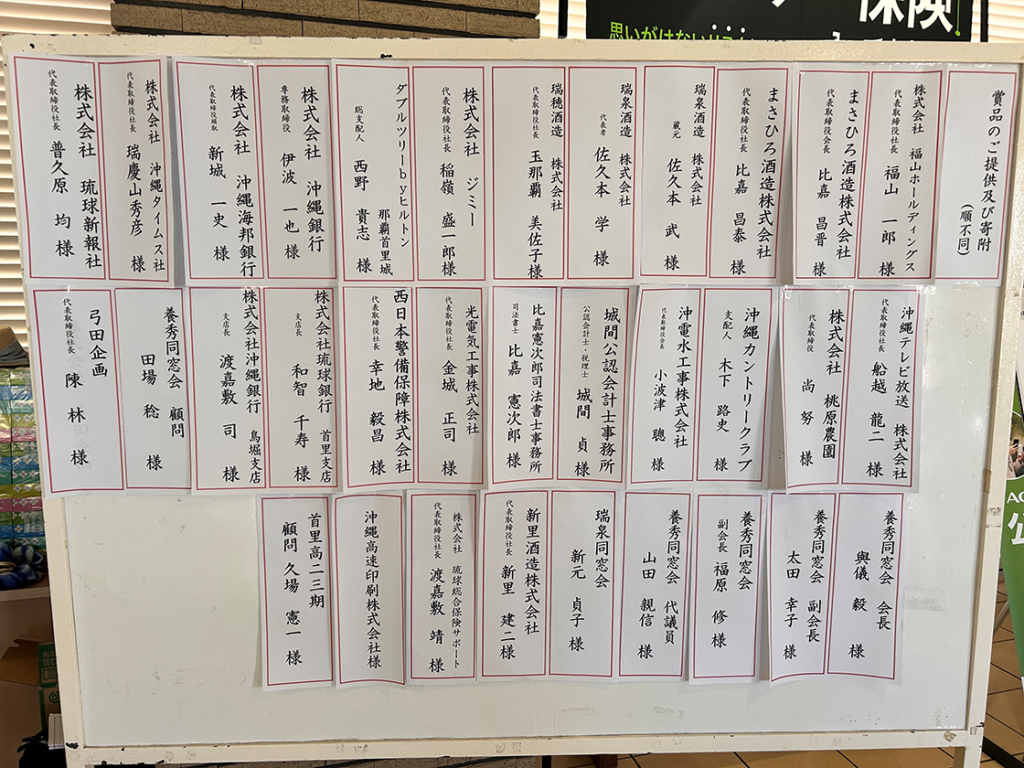 保険
思いがけない
賞品のご提供及び寄附
(順不同)
株式会社 福山ホールディングス
代表取締役社長 福山 一郎 様
まさひろ酒造株式会社
代表取締役会長 比嘉 昌晋 様
まさひろ酒造株式会社
代表取締役社長 比嘉 昌泰 様
瑞泉酒造 株式会社
蔵元 佐久本 武 様
瑞泉酒造 株式会社
代表者 佐久本 学 様
瑞穂酒造 株式会社
代表取締役社長 玉那覇 美佐子様
株式会社 ジミー
代表取締役社長 稲嶺 盛一郎様
ダブルツリーbyヒルトン
那覇首里城
総支配人 西野 貴志 様
株式会社 沖縄銀行
専務取締役 伊波 一也 様
株式会社 沖縄海邦銀行
代表取締役頭取 新城 一史 様
株式会社 沖縄タイムス社
代表取締役社長 瑞慶山秀彦 様
株式会社 琉球新報社
代表取締役社長 普久原 均 様
沖縄テレビ放送 株式会社
代表取締役社長 船越 龍二 様
株式会社 桃原農園
代表取締役 尚 努 様
沖縄カントリークラブ
支配人 木下 路史 様
沖電水工事株式会社
代表取締役会長 小波津 聰 様
城間公認会計士事務所
公認会計士・税理士 城間 貞 様
比嘉憲次郎司法書士事務所
司法書士 比嘉 憲次郎 様
光電気工事株式会社
代表取締役社長 金城 正司 様
西日本警備保障株式会社
代表取締役社長 幸地 毅昌 様
株式会社琉球銀行 首里支店
支店長 和智 千寿 様
株式会社沖縄銀行 鳥堀支店
支店長 渡嘉敷 司 様
養秀同窓会 顧問
田場 稔 様
弓田企画
代表取締役社長 陳 林 様
養秀同窓会 会長
與儀 毅 様
養秀同窓会 副会長
太田 幸子 様
養秀同窓会
副会長 福原 修 様
養秀同窓会 代議員
山田 親信 様
瑞泉同窓会
新元 貞子 様
新里酒造株式会社
代表取締役社長 新里 建二様
株式会社 琉球総合保険サポート
代表取締役社長 渡嘉敷 靖 様
沖縄高速印刷株式会社様
首里高二三期
顧問 久場 憲一 様